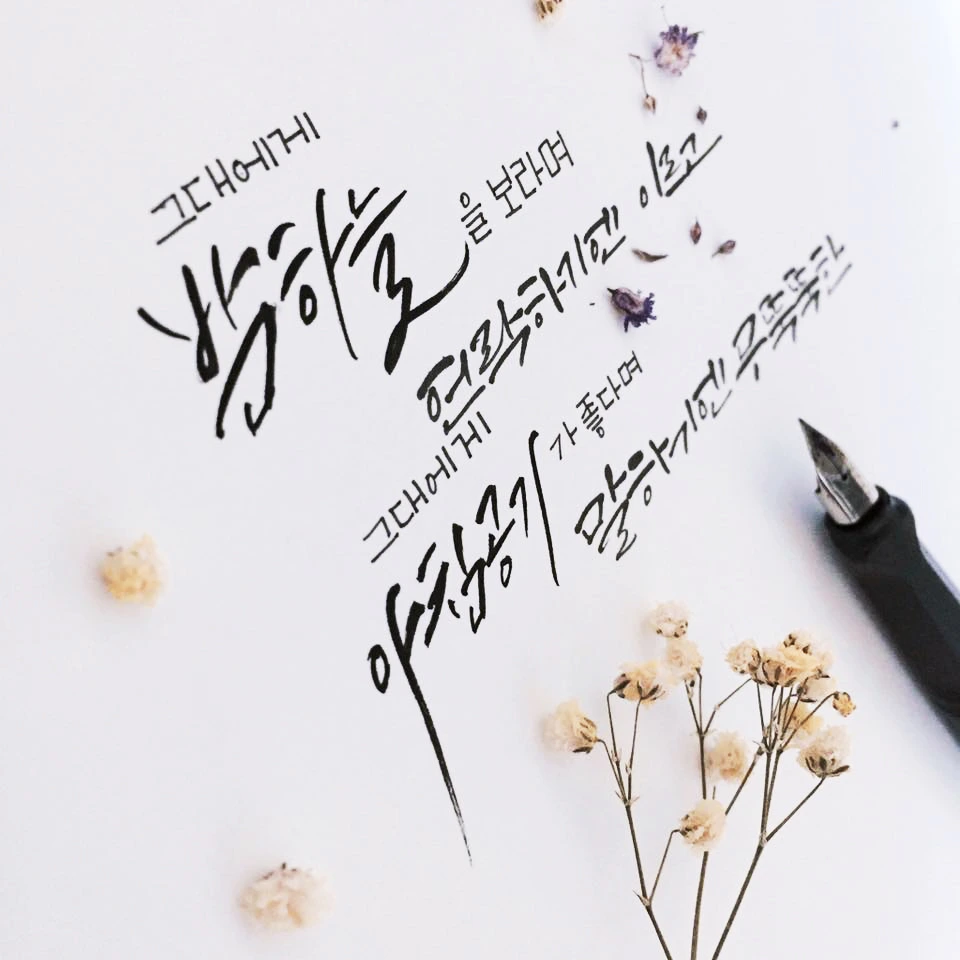 그대에게
밤하늘을 보라며
연락하기엔 이르고
그대에게
아침공기가 좋다며
말하기엔 무뚝뚝한